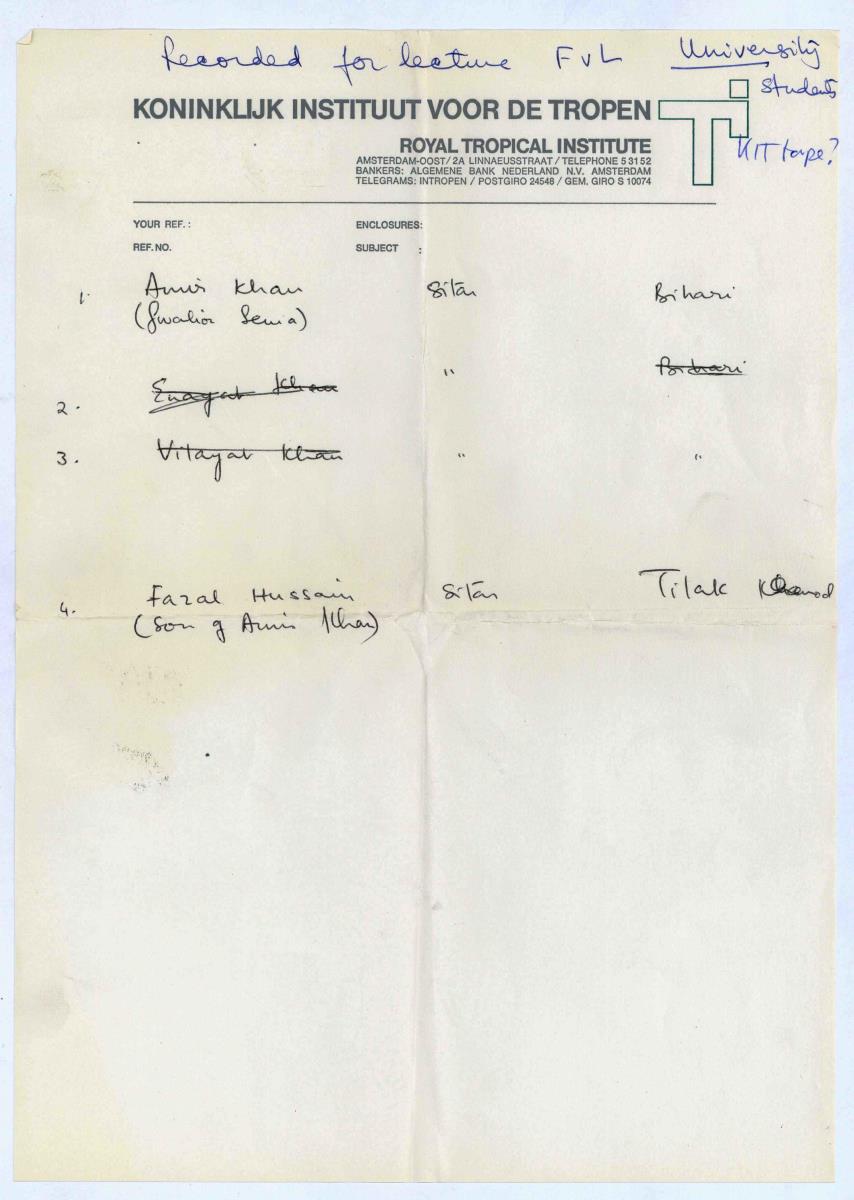 Recorded for lecture FvL University
students
KONINKLIJK INSTITUUT VOOR DE TROPEN
KIT tape?
ROYAL TROPICAL INSTITUTE
AMSTERDAM-OOST / 2A LINNAEUSSTRAAT / TELEPHONE 5 31 52
BANKERS: ALGEMENE BANK NEDERLAND N.V. AMSTERDAM
TELEGRAMS: INTROPEN / POSTGIRO 24548 / GEM. GIRO S 10074
YOUR REF. : ENCLOSURES:
REF. NO. SUBJECT :
1. Amir Khan Sitār Bihari
(Gwalior Senia)
2. Enayat Khan " Bihari
3. Vilayat Khan " "
4. Fazal Hussain Sitār Tilak
(Son of Amir Khan)